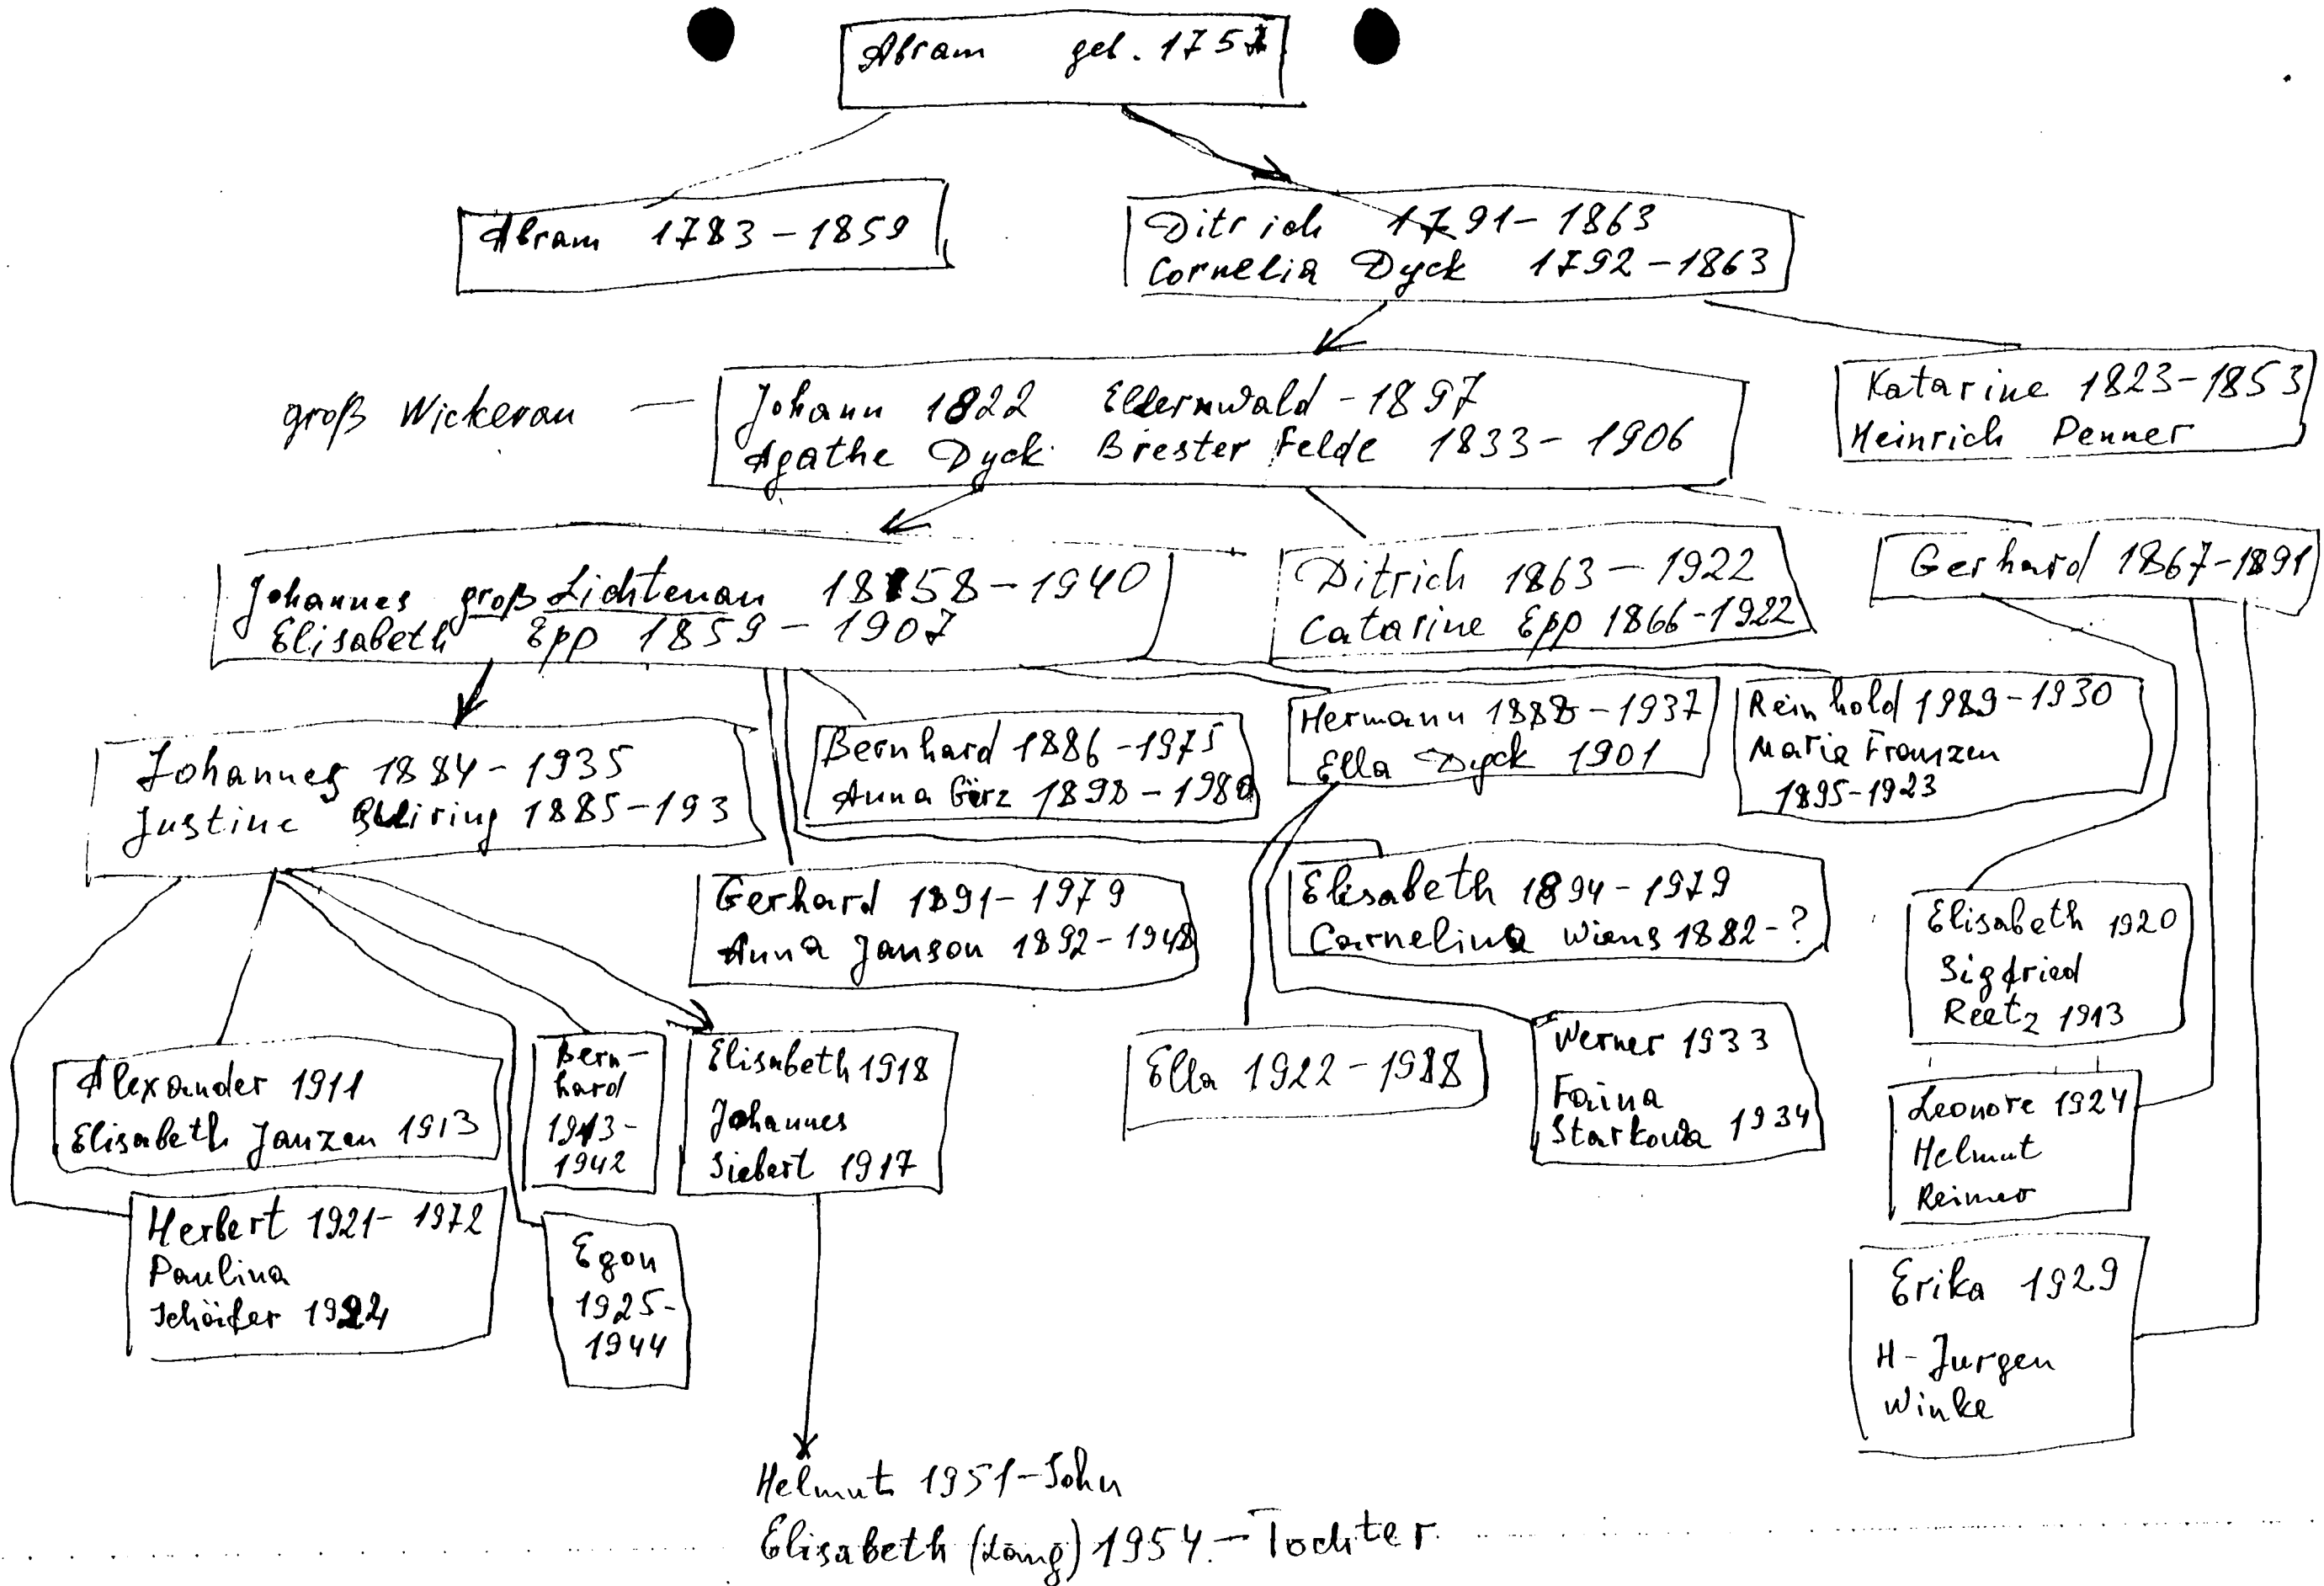 Abram geb. 1757
Abram 1783-1859
Ditrich 1791-1863
Cornelia Dyck 1792-1863
groß Wickerau
Johann 1822 Ellernwald - 1897
Agathe Dyck Brester Felde 1833-1906
Katarine 1823-1853
Heinrich Penner
Johannes groß Lichtenau 1858-1940
Elisabeth Epp 1859-1907
Ditrich 1863-1922
Catarine Epp 1866-1922
Gerhard 1867-1891
Johannes 1884-1935
Justine Quiring 1885-193
Bernhard 1886-1975
Anna Görz 1898-1980
Hermann 1888-1937
Ella Dyck 1901
Reinhold 1989-1930
Maria Franzen
1895-1923
Gerhard 1891-1979
Anna Janson 1892-1948
Elisabeth 1894-1979
Carnelius Wiens 1882-?
Elisabeth 1920
Sigfried
Reetz 1913
Alexander 1911
Elisabeth Janzen 1913
Bern-
hard
1913-
1942
Elisabeth 1918
Johannes
Siebert 1917
Ella 1922-1988
Werner 1933
Faina
Starkowa 1934
Leonore 1924
Helmut
Reimer
Herbert 1921-1972
Paulina
Schäfer 1924
Egon
1925-
1944
Erika 1929
H-Jurgen
Winke
Helmut 1951-Sohn
Elisabeth 1954-Tochter